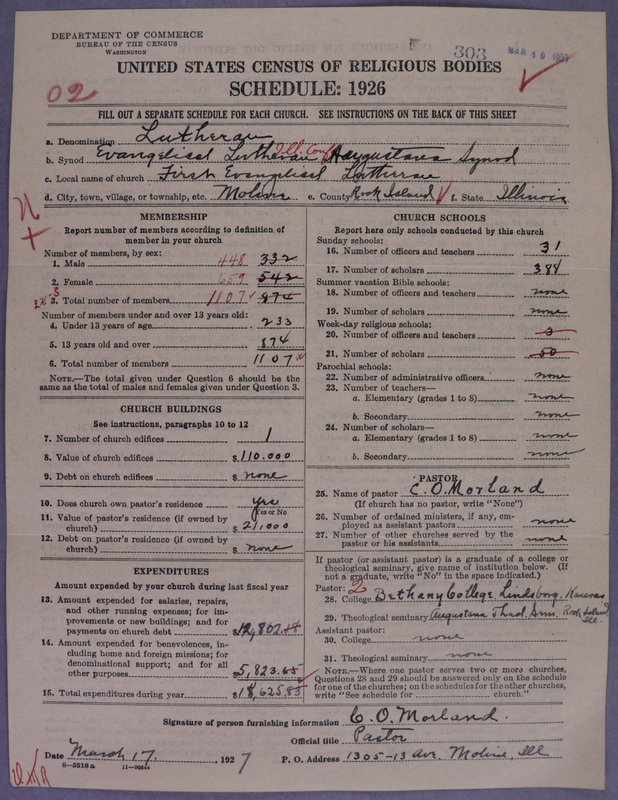 DEPARTMENT OF COMMERCE
BUREAU OF THE CENSUS
WASHINGTON
303
MAR 19
UNITED STATES CENSUS OF RELIGIOUS BODIES
SCHEDULE: 1926
02
FILL OUT A SEPARATE SCHEDULE FOR EACH CHURCH. SEE INSTRUCTIONS ON THE BACK OF THIS SHEET
a. Denomination Lutheran
b. Synod Evangelical Lutheran Ill. Conf. Augustana Synod
c. Local name of church First Evangelical Lutheran
d. City, town, village, or township, etc. Moline e. County Rock Island f. State Illinois
MEMBERSHIP
Report number of members according to definition of member in your church
Number of members, by sex:
1. Male 448 332
2. Female 659 542
3. Total number of members 1107 874
Number of members under and over 13 years old:
4. Under 13 years of age 233
5. 13 years old and over 874
6. Total number of members 1107
NOTE.—The total given under Question 6 should be the same as the total of males and females given under Question 3.
CHURCH BUILDINGS
See instructions, paragraphs 10 to 12
7. Number of church edifices 1
8. Value of church edifices $110.000
9. Debt on church edifices $ none
10. Does church own pastor's residence yes
(Yes or No)
11. Value of pastor's residence (if owned by church)
12. Debt on pastor's residence (if owned by church) $ none
EXPENDITURES
Amount expended by your church during last fiscal year
13. Amount expended for salaries, repairs, and other running expenses; for improvements or new buildings; and for payments on church debt $12,802
14. Amount expended for benevolences, including home and foreign missions; for denominational support; and for all other purposes 5,823.65
15. Total expenditures during year $18,625.83
CHURCH SCHOOLS
Report here only schools conducted by this church
Sunday schools:
16. Number of officers and teachers 31
17. Number of scholars 388
Summer vacation Bible schools:
18. Number of officers and teachers none
19. Number of scholars none
Week-day religious schools:
20. Number of officers and teachers 3
21. Number of scholars 50
Parochial schools:
22. Number of administrative officers none
23. Number of teachers—
a. Elementary (grades 1 to 8) none
b. Secondary none
24. Number of scholars—
a. Elementary (grades 1 to 8) none
b. Secondary none
PASTOR
25. Name of pastor C. O. Morland
(If church has no pastor, write "None")
26. Number of ordained ministers, if any, employed as assistant pastors none
27. Number of other churches served by the pastor or his assistants none
If pastor (or assistant pastor) is a graduate of a college or theological seminary, give name of institution below. (If not a graduate, write "No" in the space indicated.)
Pastor: 2
28. College Bethany College, Lindsborg, Kansas
29. Theological seminary Augustana Theol. Sem. Rock Island, Ill.
Assistant pastor:
30. College none
31. Theological seminary none
NOTE.—Where one pastor serves two or more churches, Questions 28 and 29 should be answered only on the schedule for one of the churches; on the schedules for the other churches, write "See schedule for church."
Signature of person furnishing information C. O. Morland.
Official title Pastor
Date March 17, 1927 P. O. Address 1305-13 Ave. Moline, Ill
8-5518a